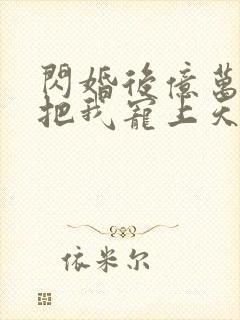 閃婚後億萬
把我寵上天
依米尔